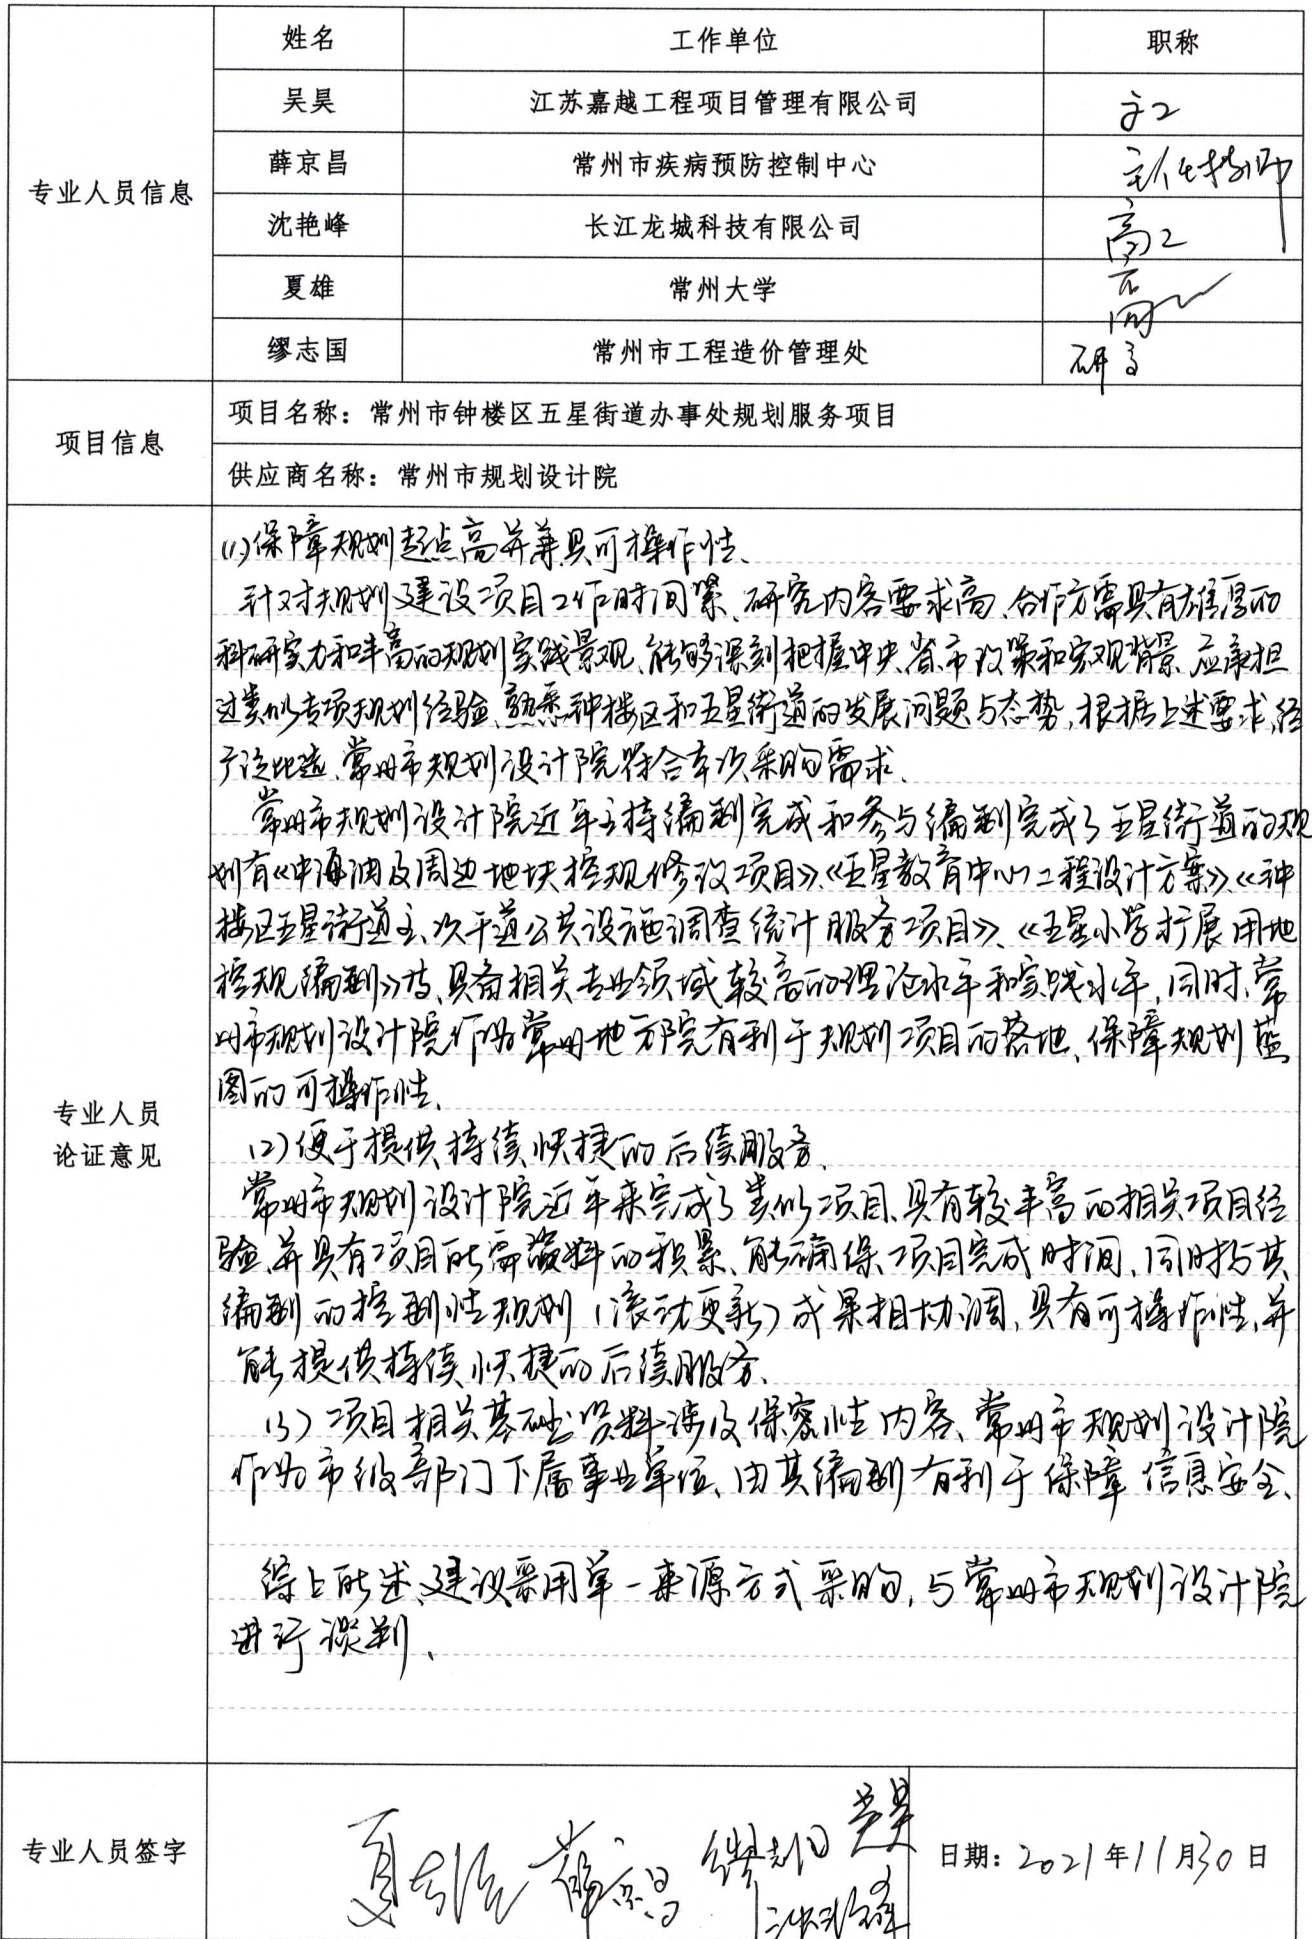 专业人员信息
姓名 工作单位 职称
吴昊 江苏嘉越工程项目管理有限公司
薛京昌 常州市疾病预防控制中心 主任技师
沈艳峰 长江龙城科技有限公司 高工
夏雄 常州大学
缪志国 常州市工程造价管理处 研高
项目信息
项目名称：常州市钟楼区五星街道办事处规划服务项目
供应商名称：常州市规划设计院
专业人员
论证意见
(1)保障规划起点高并兼具可操作性、
针对规划建设项目工作时间紧、研究内容要求高、合作方需具有雄厚的
科研实力和丰富的规划实践景观、能够深刻把握中央、省市政策和宏观背景、应承担
过类似专项规划经验、熟悉钟楼区和五星街道的发展问题与态势，根据上述要求，经
广泛比选、常州市规划设计院符合本次采购需求、
常州市规划设计院近年主持编制完成和参与编制完成了五星街道的规
划有《中海油及周边地块控规修改项目》、《五星教育中心工程设计方案》、《钟
楼区五星街道主、次干道公共设施调查统计服务项目》、《五星小学扩展用地
控规编制》等、具备相关专业领域较高的理论水平和实践水平，同时、常
州市规划设计院作为常州地方院有利于规划项目的落地、保障规划蓝
图的可操作性、
(2)便于提供持续、快捷的后续服务、
常州市规划设计院近年来完成了类似项目、具有较丰富的相关项目经
验、并具有项目所需资料的积累、能确保项目完成时间、同时与其
编制的控制性规划（滚动更新）成果相协调，具有可操作性，并
能提供持续、快捷的后续服务、
(3)项目相关基础资料涉及保密性内容、常州市规划设计院
作为市级部门下属事业单位、由其编制有利于保障信息安全、
综上所述、建议采用单一来源方式采购，与常州市规划设计院
进行谈判、
专业人员签字
夏雄 薛京昌 缪志国 吴昊
沈艳峰
日期：2021年11月30日